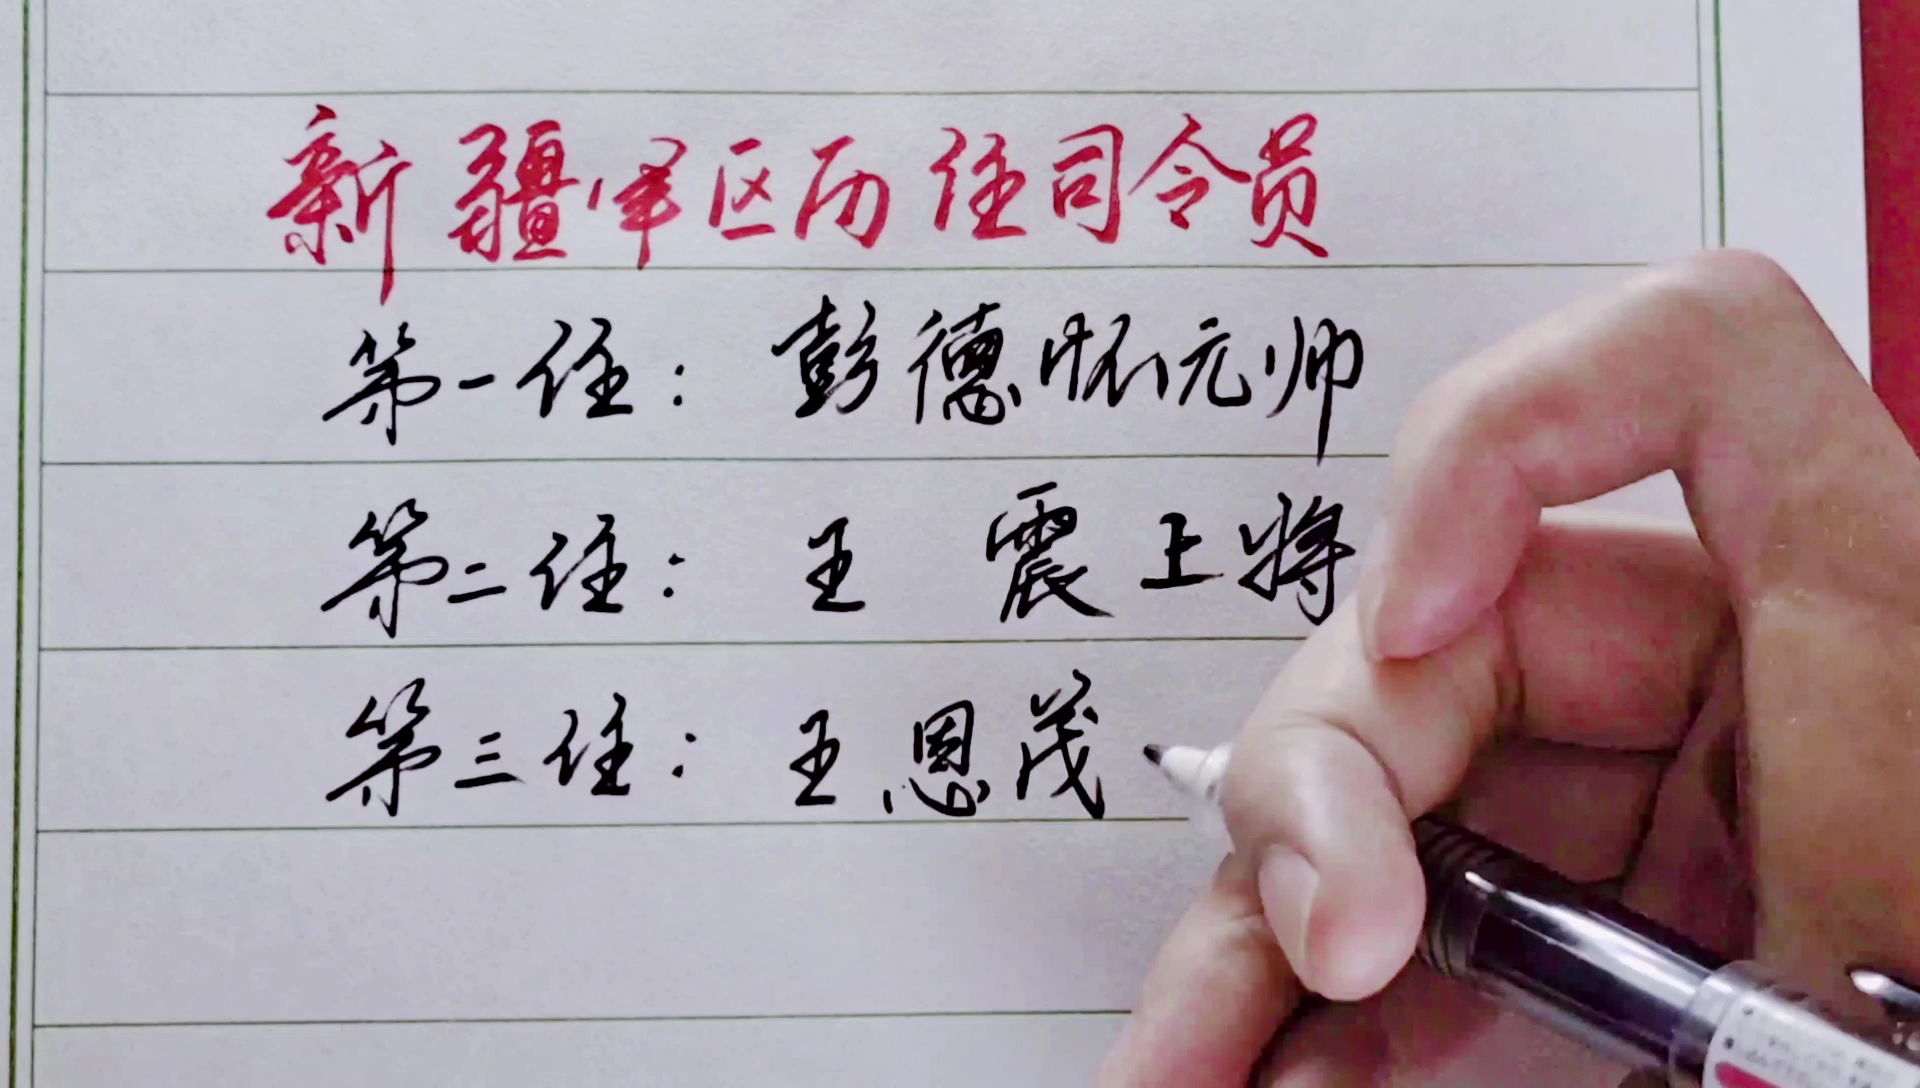 新疆军区历任司令员
第一任：彭德怀元帅
第二任：王 震上将
第三任：王恩茂